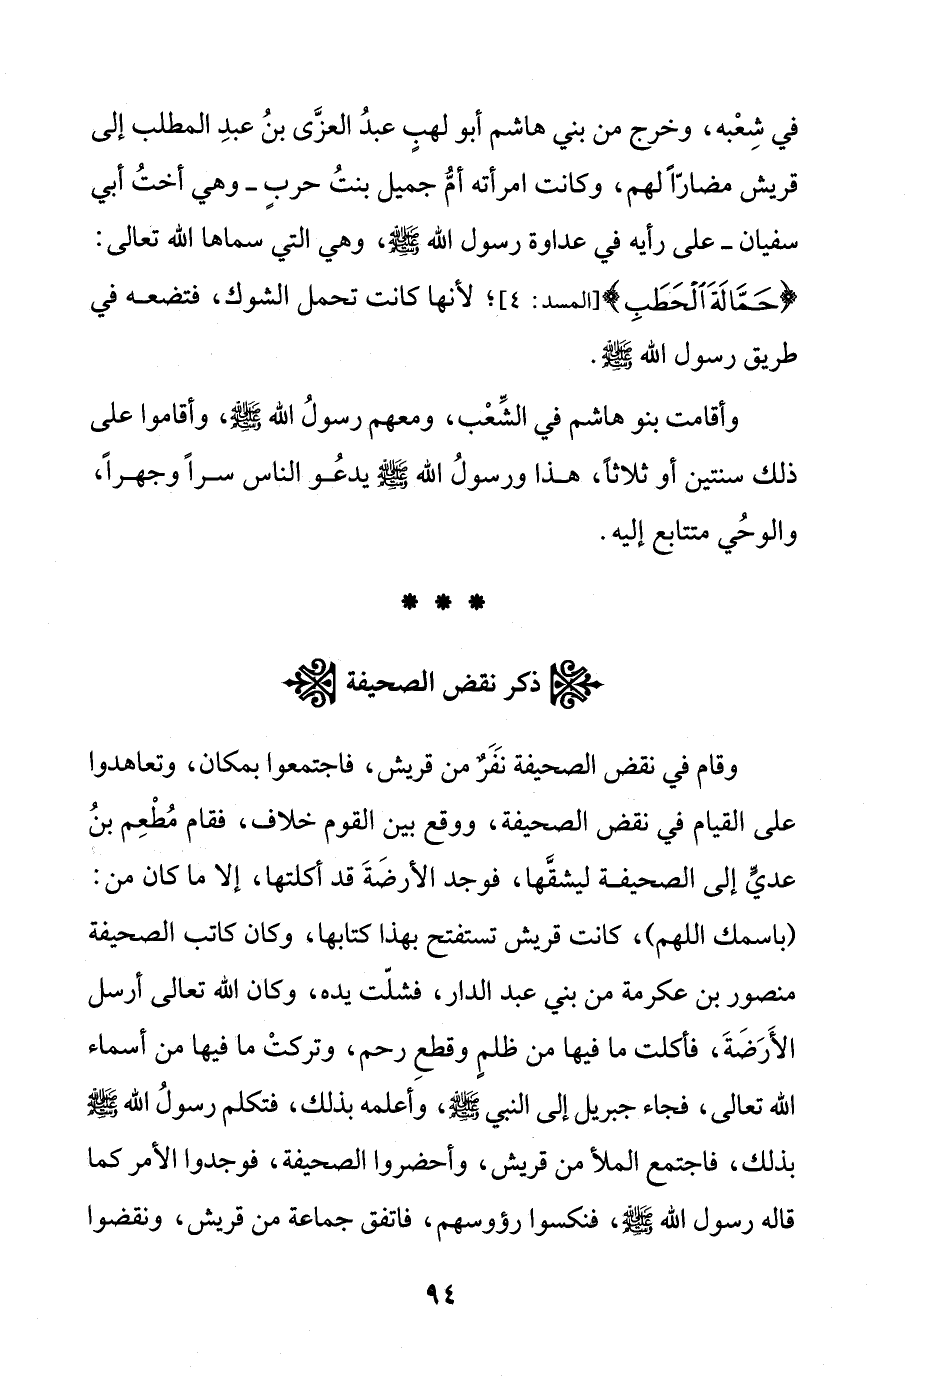 في شِعْبه، وخرج من بني هاشم أبو لهبٍ عبدُ العزَّى بنُ عبدِ المطلب إلى
قريش مضارّاً لهم، وكانت امرأته أمُّ جميل بنتُ حربٍ ـ وهي أختُ أبي
سفيان ـ على رأيه في عداوة رسول الله ﷺ، وهي التي سماها الله تعالى:
﴿حَمَّالَةَ ٱلْحَطَبِ﴾[المسد: ٤]؛ لأنها كانت تحمل الشوك، فتضعه في
طريق رسول الله ﷺ.
وأقامت بنو هاشم في الشِّعْب، ومعهم رسولُ الله ﷺ، وأقاموا على
ذلك سنتين أو ثلاثاً، هذا ورسولُ الله ﷺ يدعُو الناس سراً وجهراً،
والوحُي متتابع إليه.
* * *
ذكر نقض الصحيفة
وقام في نقض الصحيفة نَفَرٌ من قريش، فاجتمعوا بمكان، وتعاهدوا
على القيام في نقض الصحيفة، ووقع بين القوم خلاف، فقام مُطْعِم بنُ
عديٍّ إلى الصحيفة ليشقَّها، فوجد الأرضَةَ قد أكلتها، إلا ما كان من:
(باسمك اللهم)، كانت قريش تستفتح بهذا كتابها، وكان كاتب الصحيفة
منصور بن عكرمة من بني عبد الدار، فشلّت يده، وكان الله تعالى أرسل
الأَرَضَةَ، فأكلت ما فيها من ظلمٍ وقطعِ رحم، وتركتْ ما فيها من أسماء
الله تعالى، فجاء جبريل إلى النبي ﷺ، وأعلمه بذلك، فتكلم رسولُ الله ﷺ
بذلك، فاجتمع الملأ من قريش، وأحضروا الصحيفة، فوجدوا الأمر كما
قاله رسول الله ﷺ، فنكسوا رؤوسهم، فاتفق جماعة من قريش، ونقضوا
٩٤